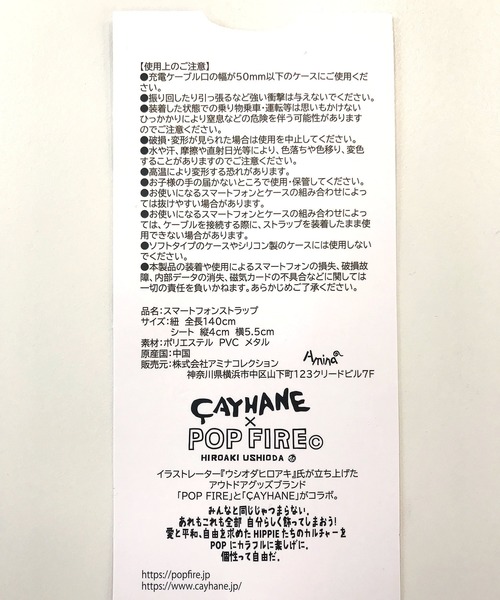 【使用上のご注意】
●充電ケーブル口の幅が50mm以下のケースにご使用くだ
さい。
●振り回したり引っ張るなど強い衝撃は与えないでください。
●装着した状態での乗り物乗車・運転等は思いもかけない
ひっかかりにより窒息などの危険を伴う可能性があります
のでご注意ください。
●破損・変形が見られた場合は使用を中止してください。
●水や汗、摩擦や直射日光等により、色落ちや色移り、変色
することがありますのでご注意ください。
●高温により変形する恐れがあります。
●お子様の手の届かないところで使用・保管してください。
●お使いになるスマートフォンとケースの組み合わせによっ
ては抜けやすい場合があります。
●お使いになるスマートフォンとケースの組み合わせによっ
ては、ケーブルを接続する際に、ストラップを装着したまま使
用できない場合があります。
●ソフトタイプのケースやシリコン製のケースには使用しない
でください。
●本製品の装着や使用によるスマートフォンの損失、破損故
障、内部データの消失、磁気カードの不具合などに関しては
一切の責任を負いかねます。あらかじめご了承ください。
品名:スマートフォンストラップ
サイズ:紐 全長140cm
シート 縦4cm 横5.5cm
素材:ポリエステル PVC メタル
原産国:中国
Amina
販売元:株式会社アミナコレクション
神奈川県横浜市中区山下町123クリードビル7F
ÇAYHANE
×
POP FIRE©
HIROAKI USHIODA
イラストレーター『ウシオダヒロアキ』氏が立ち上げた
アウトドアグッズブランド
「POP FIRE」と「ÇAYHANE」がコラボ。
みんなと同じじゃつまらない。
あれもこれも全部 自分らしく飾ってしまおう!
愛と平和、自由を求めた HIPPIE たちのカルチャーを
POP にカラフルに楽しげに。
個性って自由だ。
https://popfire.jp
https://www.cayhane.jp/